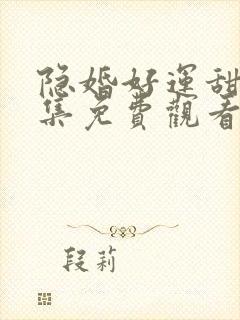 隐婚好運甜
集免費觀看
段莉